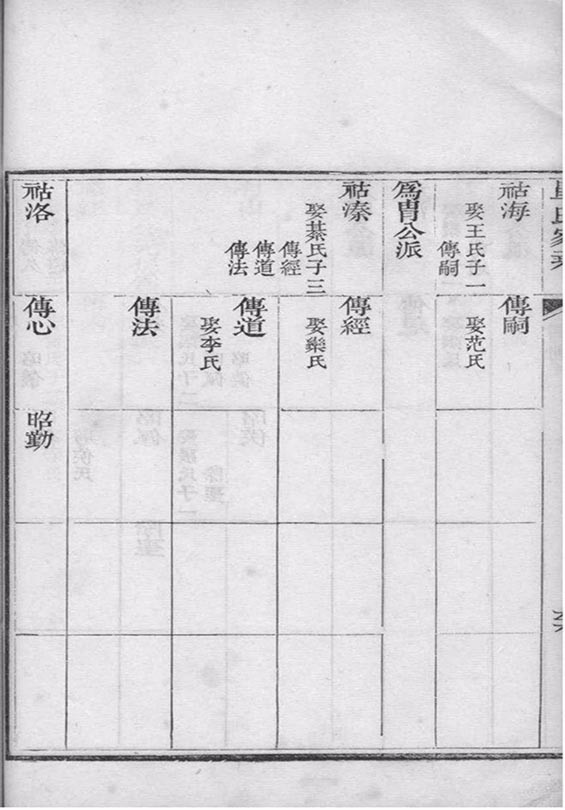 氏家乘
祜海
娶王氏子一
傳嗣
傳嗣
娶范氏
為胄公派
祜溱
娶綦氏子三
傳經
傳道
傳法
傳經
娶欒氏
傳道
娶李氏
傳法
祜洛
傳心
昭勤